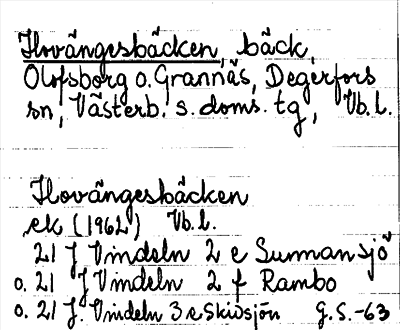 Hovängesbäcken, bäck,
Olofsborg o. Grannäs, Degerfors
sn, Västerb. s. doms. tg, Vb. l.
Hovängesbäcken
ek (1962) Vb. l.
21 J Vindeln 2 e Surmansjö
o. 21 J Vindeln 2 f Rambo
o. 21 J. Vindeln 3 e Skivsjön G.S.-63